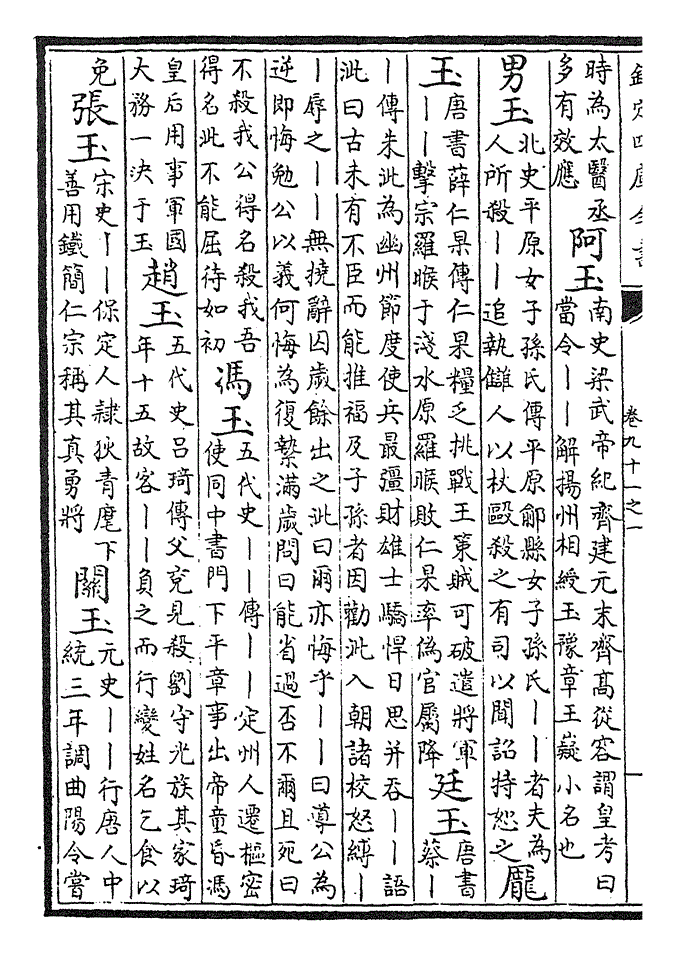 欽定四庫全書
卷九十一之一
一
時為太醫丞
多有效應
阿玉
南史梁武帝紀齊建元末齊髙從容謂皇考曰
當令丨丨解揚州相綬玉豫章王嶷小名也
男玉
北史平原女子孫氏傳平原鄃縣女子孫氏丨丨者夫為
人所殺丨丨追執讎人以杖毆殺之有司以聞詔特恕之
龎
玉
唐書薛仁杲傳仁杲糧乏挑戰王策賊可破遣將軍
丨丨擊宗羅㬋于淺水原羅㬋敗仁杲率偽官屬降
廷玉
唐書
蔡丨
丨傳朱泚為幽州節度使兵最彊財雄士驕悍日思并吞丨丨語
泚曰古未有不臣而能推福及子孫者因勸泚入朝諸校怒縛丨
丨辱之丨丨無撓辭囚歲餘出之泚曰爾亦悔乎丨丨曰導公為
逆即悔勉公以義何悔為復縶滿歲問曰能省過否不爾且死曰
不殺我公得名殺我吾
得名泚不能屈待如初
馮玉
五代史丨丨傳丨丨定州人遷樞密
使同中書門下平章事出帝童昏馮
皇后用事軍國
大務一決于玉
趙玉
五代史吕琦傳父兖見殺劉守光族其家琦
年十五故客丨丨負之而行變姓名乞食以
免
張玉
宋史丨丨保定人隸狄青麾下
善用鐵簡仁宗稱其真勇將
關玉
元史丨丨行唐人中
統三年調曲陽令嘗